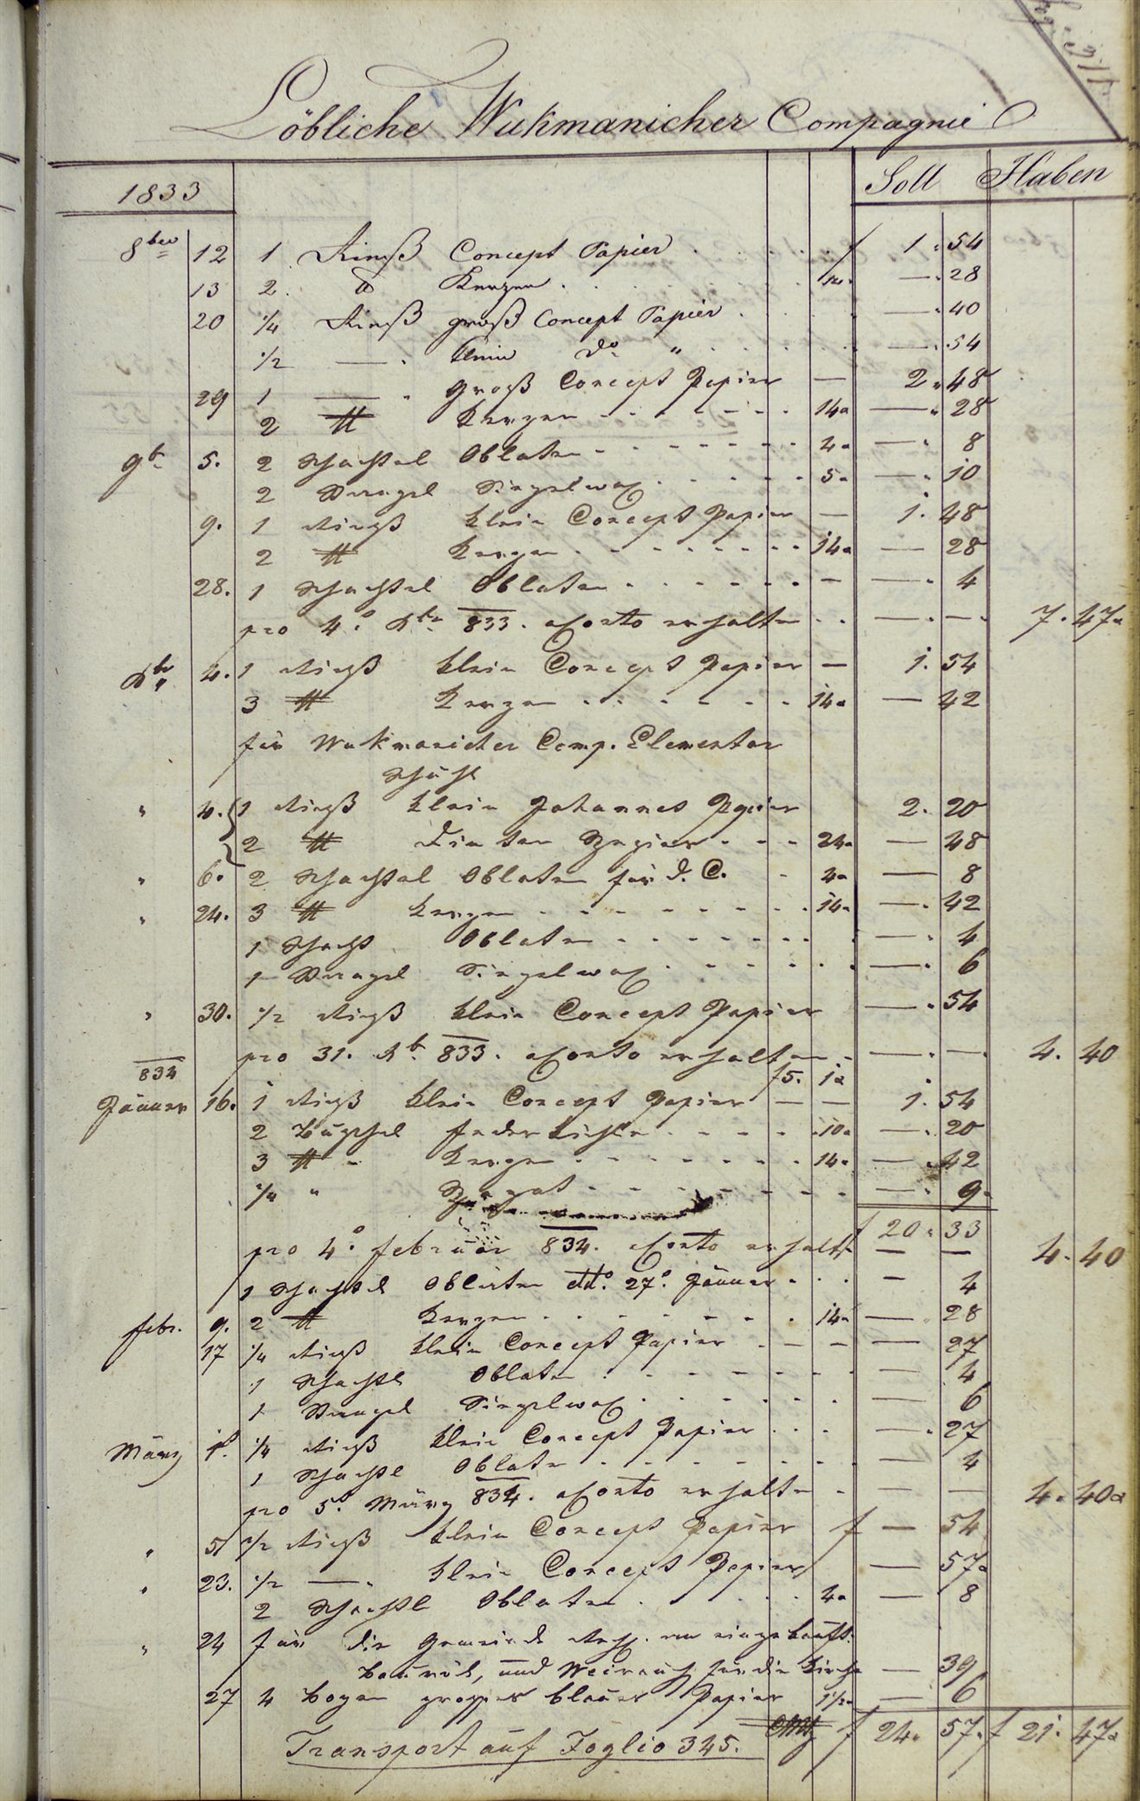 Löbliche Wukmanicher Compagnie
1833 Soll Haben
8ber 12 1 Rieß Concept Papier f 1. 54
13 2 ℔ Kerzen 14. — 28
20 1/4 Rieß groß Concept Papier — 40
1/2 — klein do " — 54
29 1 — groß Concept Papier — 2. 48
2 ℔ Kerzen 14 — 28
9br 5. 2 Schachtel Oblaten 4 — 8
2 Stangel Siegelwax 5 — 10
9. 1 Rieß klein Concept Papier — 1. 48
2 ℔ Kerzen 14 — 28
28. 1 Schachtel Oblaten — — 4
pro 4o. Xbr 833. a Conto erhalten — — 7. 47
Xbr 4. 1 Rieß klein Concept Papier — 1. 54
3 ℔ Kerzen 14 — 42
für Wukmanicher Comp. Elementar
Schuhl
" 4. 1 Rieß klein Johannes Papier 2. 20
2 ℔ Dinten Spezies 24 — 48
" 6. 2 Schachtel Oblaten für d. C. 4 — 8
" 24. 3 ℔ Kerzen 14 — 42
1 Schacht Oblaten — 4
1 Stangel Siegelwax — 6
" 30. 1/2 Rieß klein Concept Papier — 54
pro 31. Xb. 833. a Conto erhalten — — 4. 40
834 f5. 12
Jänner 16. 1 Rieß klein Concept Papier — — 1. 54
2 Büschel Federkiele 10 — 20
3 ℔ Kerzen 14 — 42
1/4 " — 9
f 20. 33
pro 4o. Februar 834. a Conto erhalt — — 4. 40
1 Schachtel Oblaten dto. 27o. Jänner — 4
Febr. 9. 2 ℔ Kerzen 14 — 28
17 1/4 Rieß klein Concept Papier — — 27
1 Schachtl Oblaten — 4
1 Stangel Siegelwax — 6
März 1t. 1/4 Rieß klein Concept Papier — 27
1 Schachtl Oblaten — 4
pro 5t März 834. a Conto erhalten — — 4. 40
" 5 1/2 Rieß klein Concept Papier f — 54
" 23. 1/2 — klein Concept Papier — 57
2 Schachtl Oblaten 4 — 8
" 24 für die Gemeinde
und Weirauch für die Kirche — 39
27 4 Bogen grosses blaues Papier 1 1/2 — 6
Transport auf Foglio 345. f 24. 57. f 21. 47